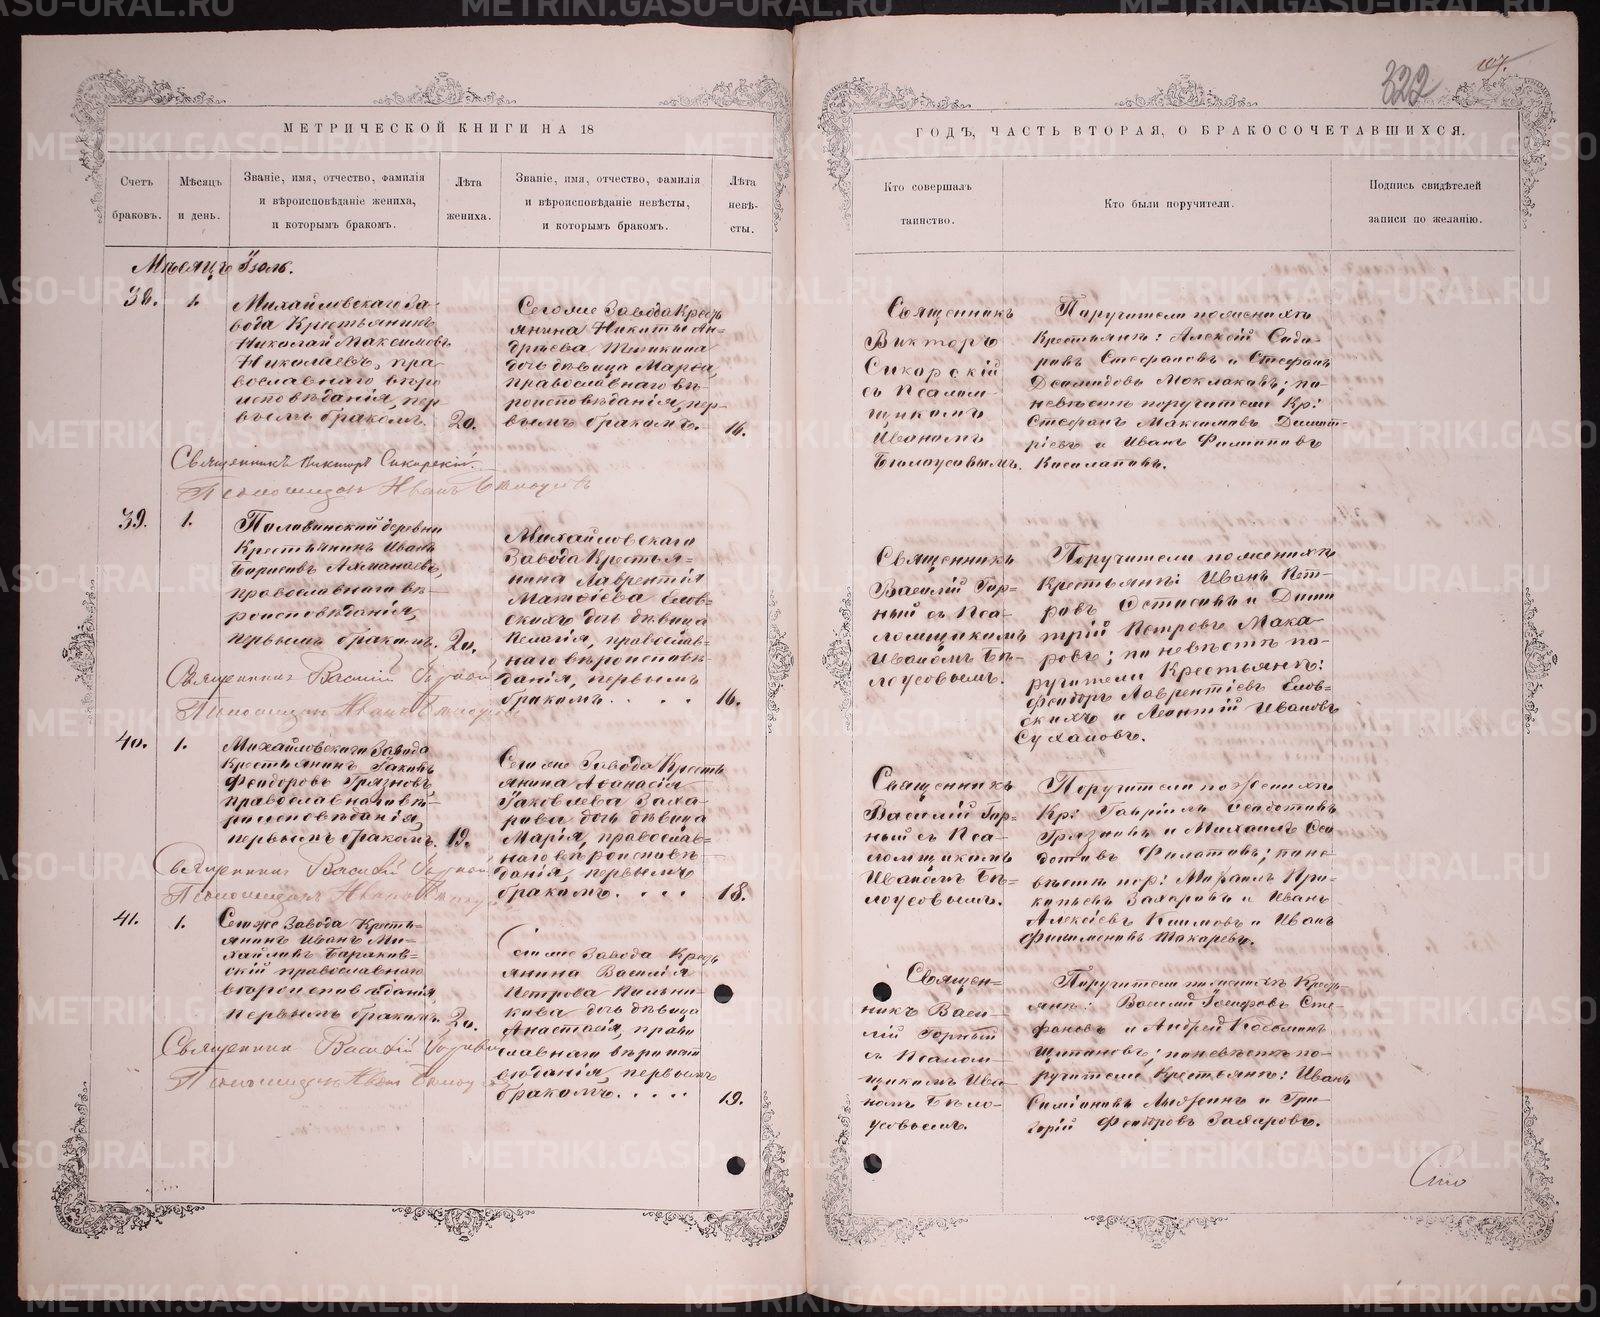 МЕТРИЧЕСКОЙ КНИГИ НА 18
Счетъ браковъ.
Мѣсяцъ и день.
Званіе, имя, отчество, фамилія
и вѣроисповѣданіе жениха,
и которымъ бракомъ.
Лѣта жениха.
Званіе, имя, отчество, фамилія
и вѣроисповѣданіе невѣсты,
и которымъ бракомъ.
Лѣта невѣ-
сты.
Мѣсяцъ Іюль.
38.
1.
Михайловскаго За-
вода Крестьянинъ
Николай Максимовъ
Николаевъ, пра-
вославнаго вѣро
исповѣданія, пер
вымъ бракомъ.
20.
Сегоже Завода Кресть
янина Никиты Ан-
дрѣева
дочь дѣвица Марья,
православнаго вѣ-
роисповѣданія, пер-
вымъ бракомъ.
16.
Священникъ Викторъ Сикорскій
Псаломщикъ Иванъ Бѣлоусовъ
39.
1.
Полавинской деревни
Крестьянинъ Иванъ
Борисовъ
православнаго вѣ-
роисповѣданія,
первымъ бракомъ.
20.
Михайловскаго
Завода Крестья-
нина Лаврентія
Матвѣева Елов-
скихъ дочь дѣвица
Пелагія, православ-
наго вѣроисповѣ-
данія, первымъ
бракомъ. . . . .
16.
Священникъ Василій Горный
Псаломщикъ Иванъ Бѣлоусовъ
40.
1.
Михайловскаго Завода
Крестьянинъ Іаковъ
Феодоровъ Грязновъ,
православнаго вѣ-
роисповѣданія,
первымъ бракомъ.
19.
Сегоже Завода Кресть
янина Аѳанасія
Іаковлева Заха-
рова дочь дѣвица
Марія, православ-
наго вѣроисповѣ
данія, первымъ
бракомъ. . . . .
18.
Священникъ Василій Горный
Псаломщикъ Иванъ Бѣлоусовъ
41.
1.
Сегоже Завода Кресть-
янинъ Иванъ Ми-
хайловъ
православнаго
вѣроисповѣданія
первымъ бракомъ.
20.
Сегоже Завода Кресть
янина Василія
Петрова
дочь дѣвица
Анастасія, право
славнаго вѣроиспо
вѣданія, первымъ
бракомъ. . . . .
19.
Священникъ Василій Горный
Псаломщикъ Иванъ Бѣлоусовъ
322
107.
ГОДЪ, ЧАСТЬ ВТОРАЯ, О БРАКОСОЧЕТАВШИХСЯ.
Кто совершалъ
таинство.
Кто были поручители.
Подпись свидѣтелей
записи по желанію.
Священникъ
Викторъ
Сикорскій
съ Псалом-
щикомъ
Иваномъ
Бѣлоусовымъ.
Поручители по женихѣ
Крестьяне: Алексій Сидо-
ровъ Стефановъ и Стефанъ
Диомидовъ Моклаковъ; по
невѣстѣ поручители Кр:
Стефанъ Максимовъ Димит-
ріевъ и Иванъ Филиповъ
Священникъ
Василій Гор-
ный съ Пса-
ломщикомъ
Иваномъ Бѣ-
лоусовымъ.
Поручители по женихѣ
Крестьяне: Иванъ Пет-
ровъ и Дими
трій Петровъ Мака
ровъ; по невѣстѣ по-
ручители Крестьяне:
Феодоръ Лаврентіевъ Елов-
скихъ и Леонтій Ивановъ
Сухановъ.
Священникъ
Василій Гор-
ный съ Пса-
ломщикомъ
Иваномъ Бѣ-
лоусовымъ.
Поручители по женихѣ
Кр: Гавріилъ Ѳедотовъ
Грязновъ и Михаилъ Ѳе
дотовъ Филатовъ; по не-
вѣстѣ пор: Михаилъ Про-
копьевъ Захаровъ и Иванъ
Алексіевъ Климовъ и Иванъ
Филимоновъ Токаревъ.
Священ-
никъ Васи-
лій Горный
съ Псалом-
щикомъ Ива-
номъ Бѣло-
усовымъ.
Поручители по женихѣ Кресть-
яне: Василій Іосифовъ Сте-
фановъ и Андрей
по невѣстѣ по-
ручители Крестьяне: Иванъ
Симіоновъ и Гри-
горій Феодоровъ Захаровъ.
Сто
METRIKI.GASO-URAL.RU